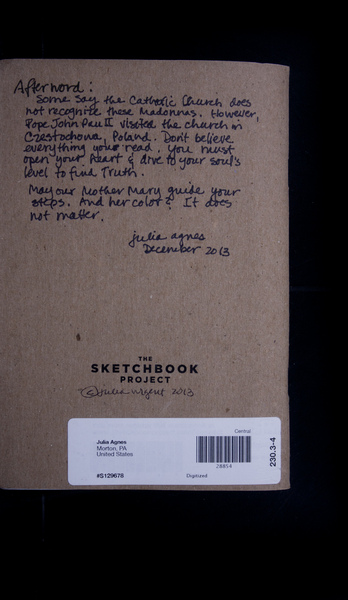 Afterword:
Some say the Catholic Church does
not recognize these Madonnas. However,
Pope John Paul II visited the church in
Czestochowa, Poland. Don't believe
everything your read. You must
open your heart & dive to your soul's
level to find Truth.
May our Mother Mary guide your
steps. And her color? It does
not matter.
julia agnes
December 2013
THE
SKETCHBOOK
PROJECT
© julia 2013
Julia Agnes
Morton, PA
United States
#S129678
Central
28854
Digitized
230.3-4